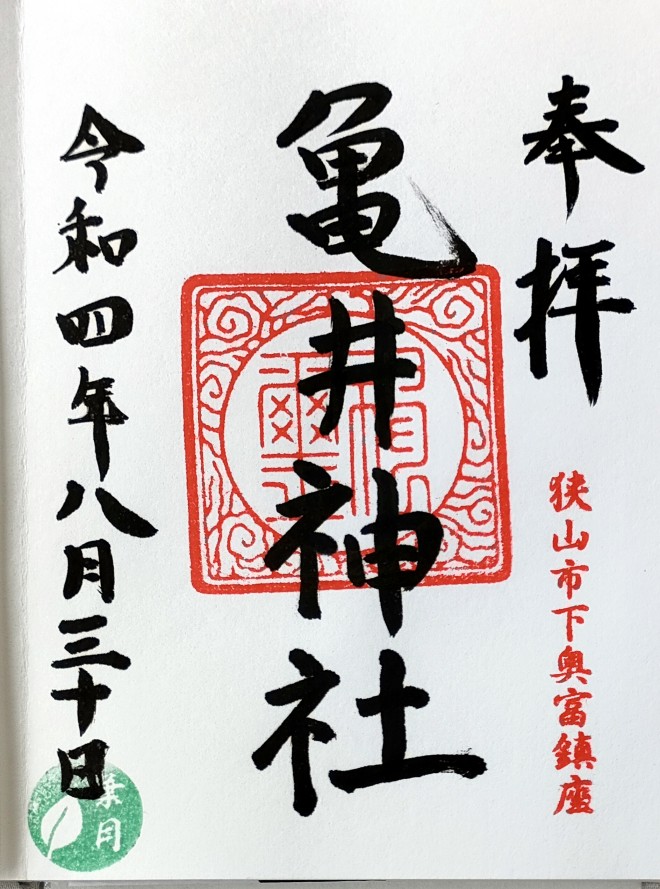 奉拝
狭山市下奥富鎮座
亀井神社
令和四年八月三十日
葉月